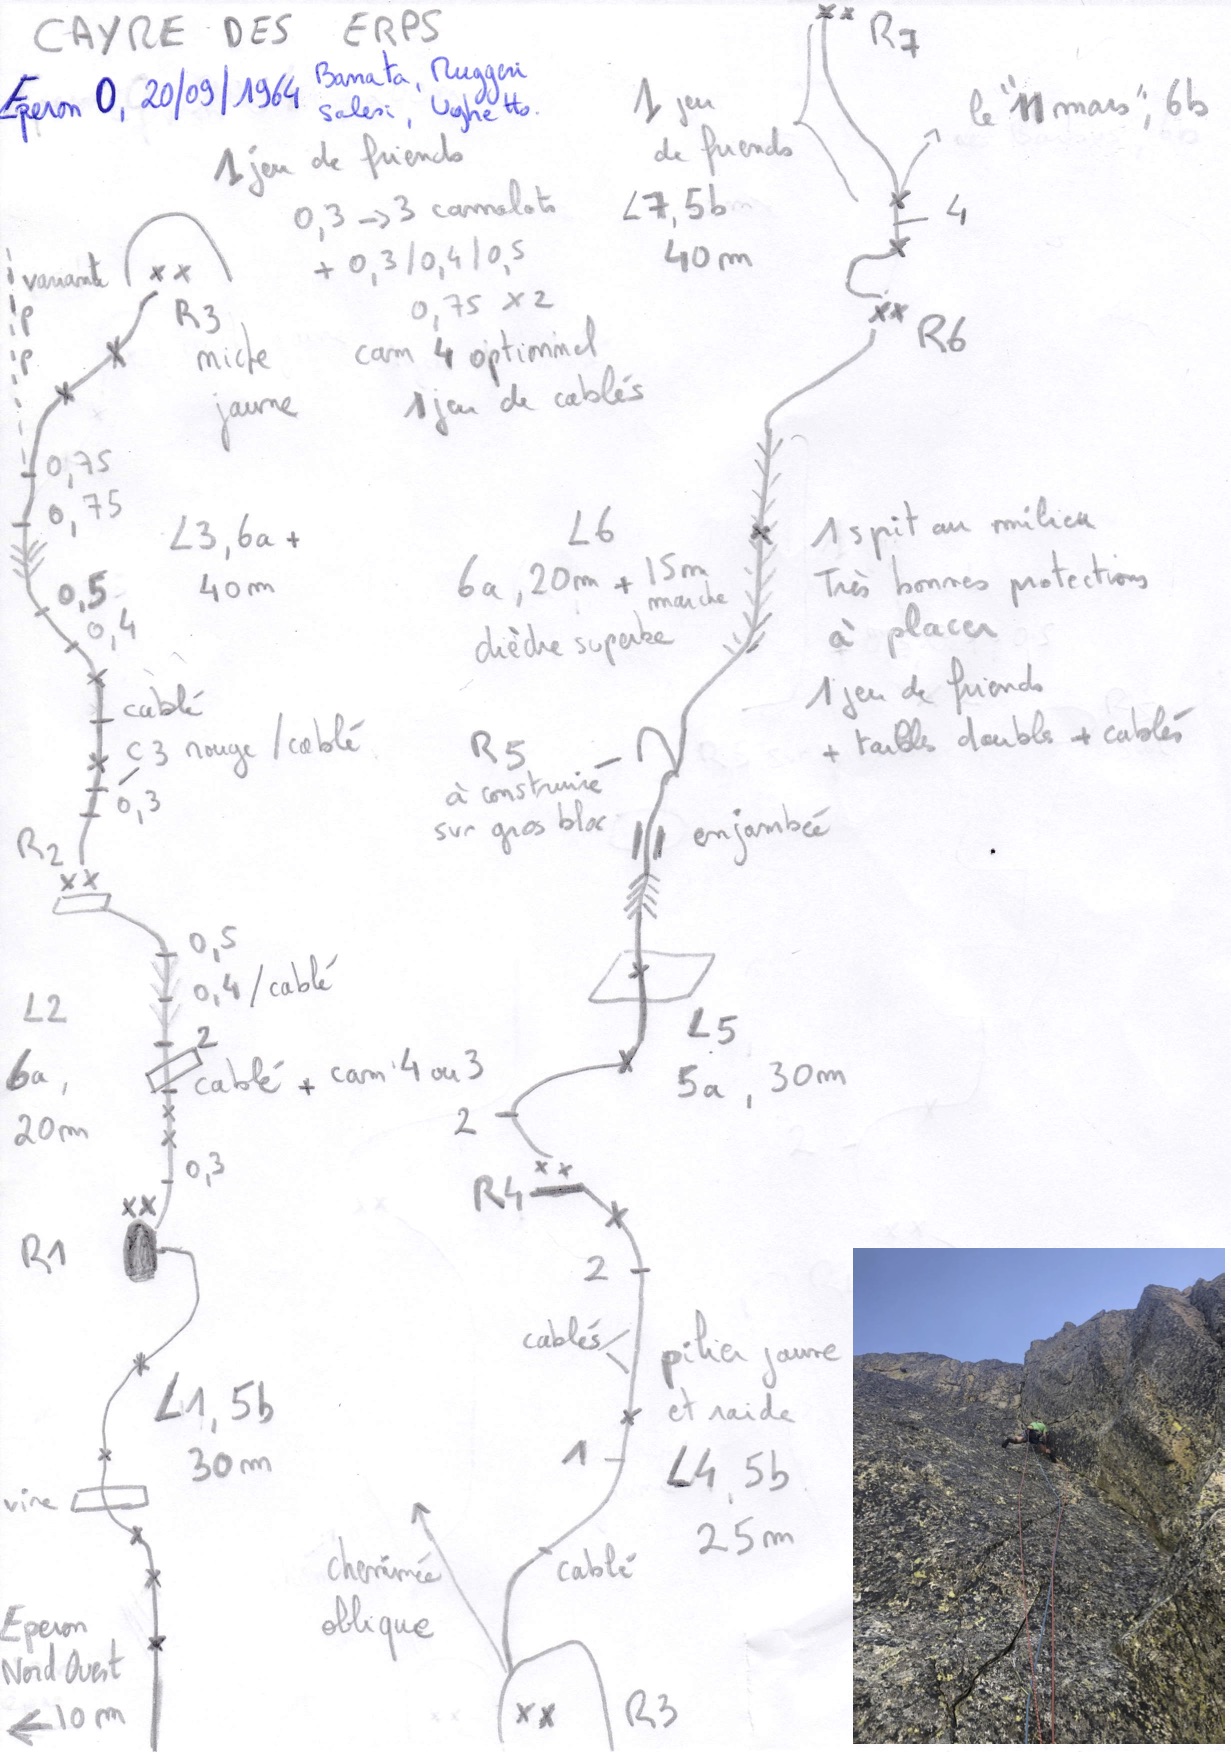 CAYRE DES ERPS
Eperon O, 20/09/1964 Barrata, Ruggeri
Salesi, Ughetto.
1 jeu de friends
0,3 -> 3 camalots
+ 0,3/0,4/0,5
0,75 x2
cam 4 optionnel
1 jeu de cablés
variante
P
P
R3
miche
jaune
0,75
0,75
L3, 6a+
40m
0,5
0,4
cablé
C3 rouge/cablé
0,3
R2
0,5
0,4/cablé
L2
2
6a,
cablé + cam 4 ou 3
20m
0,3
R1
L1, 5b
30m
vire
Eperon
Nord Ouest
10m
R7
le "11 mars", 6b
1 jeu
de friends
L7, 5b
40m
4
R6
L6
6a, 20m + 15m
marche
dièdre superbe
1 spit au milieu
Très bonnes protections
à placer
1 jeu de friends
+ doubls + cablés
R5
à construire
sur gros bloc
enjambée
L5
5a, 30m
2
R4
2
cablés
pilier jaune
et raide
1
L4, 5b
25m
cablé
cheminée
oblique
R3